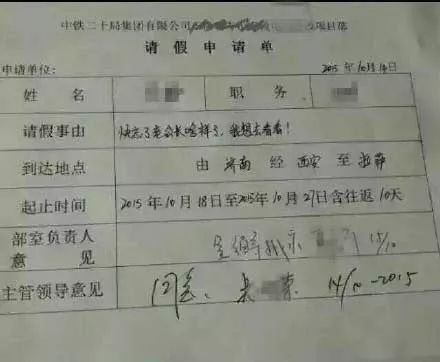 中铁二十局集团有限公司 项目部
请假申请单
申请单位： 2015年10月14日
姓名 职务
请假事由 快忘了老公长啥样了，我想去看看！
到达地点 由 济南 经 西安 至 拉萨
起止时间 2015年10月18日至2015年10月27日含往返10天
部室负责人
意见
主管领导意见 同意、 14/10-2015